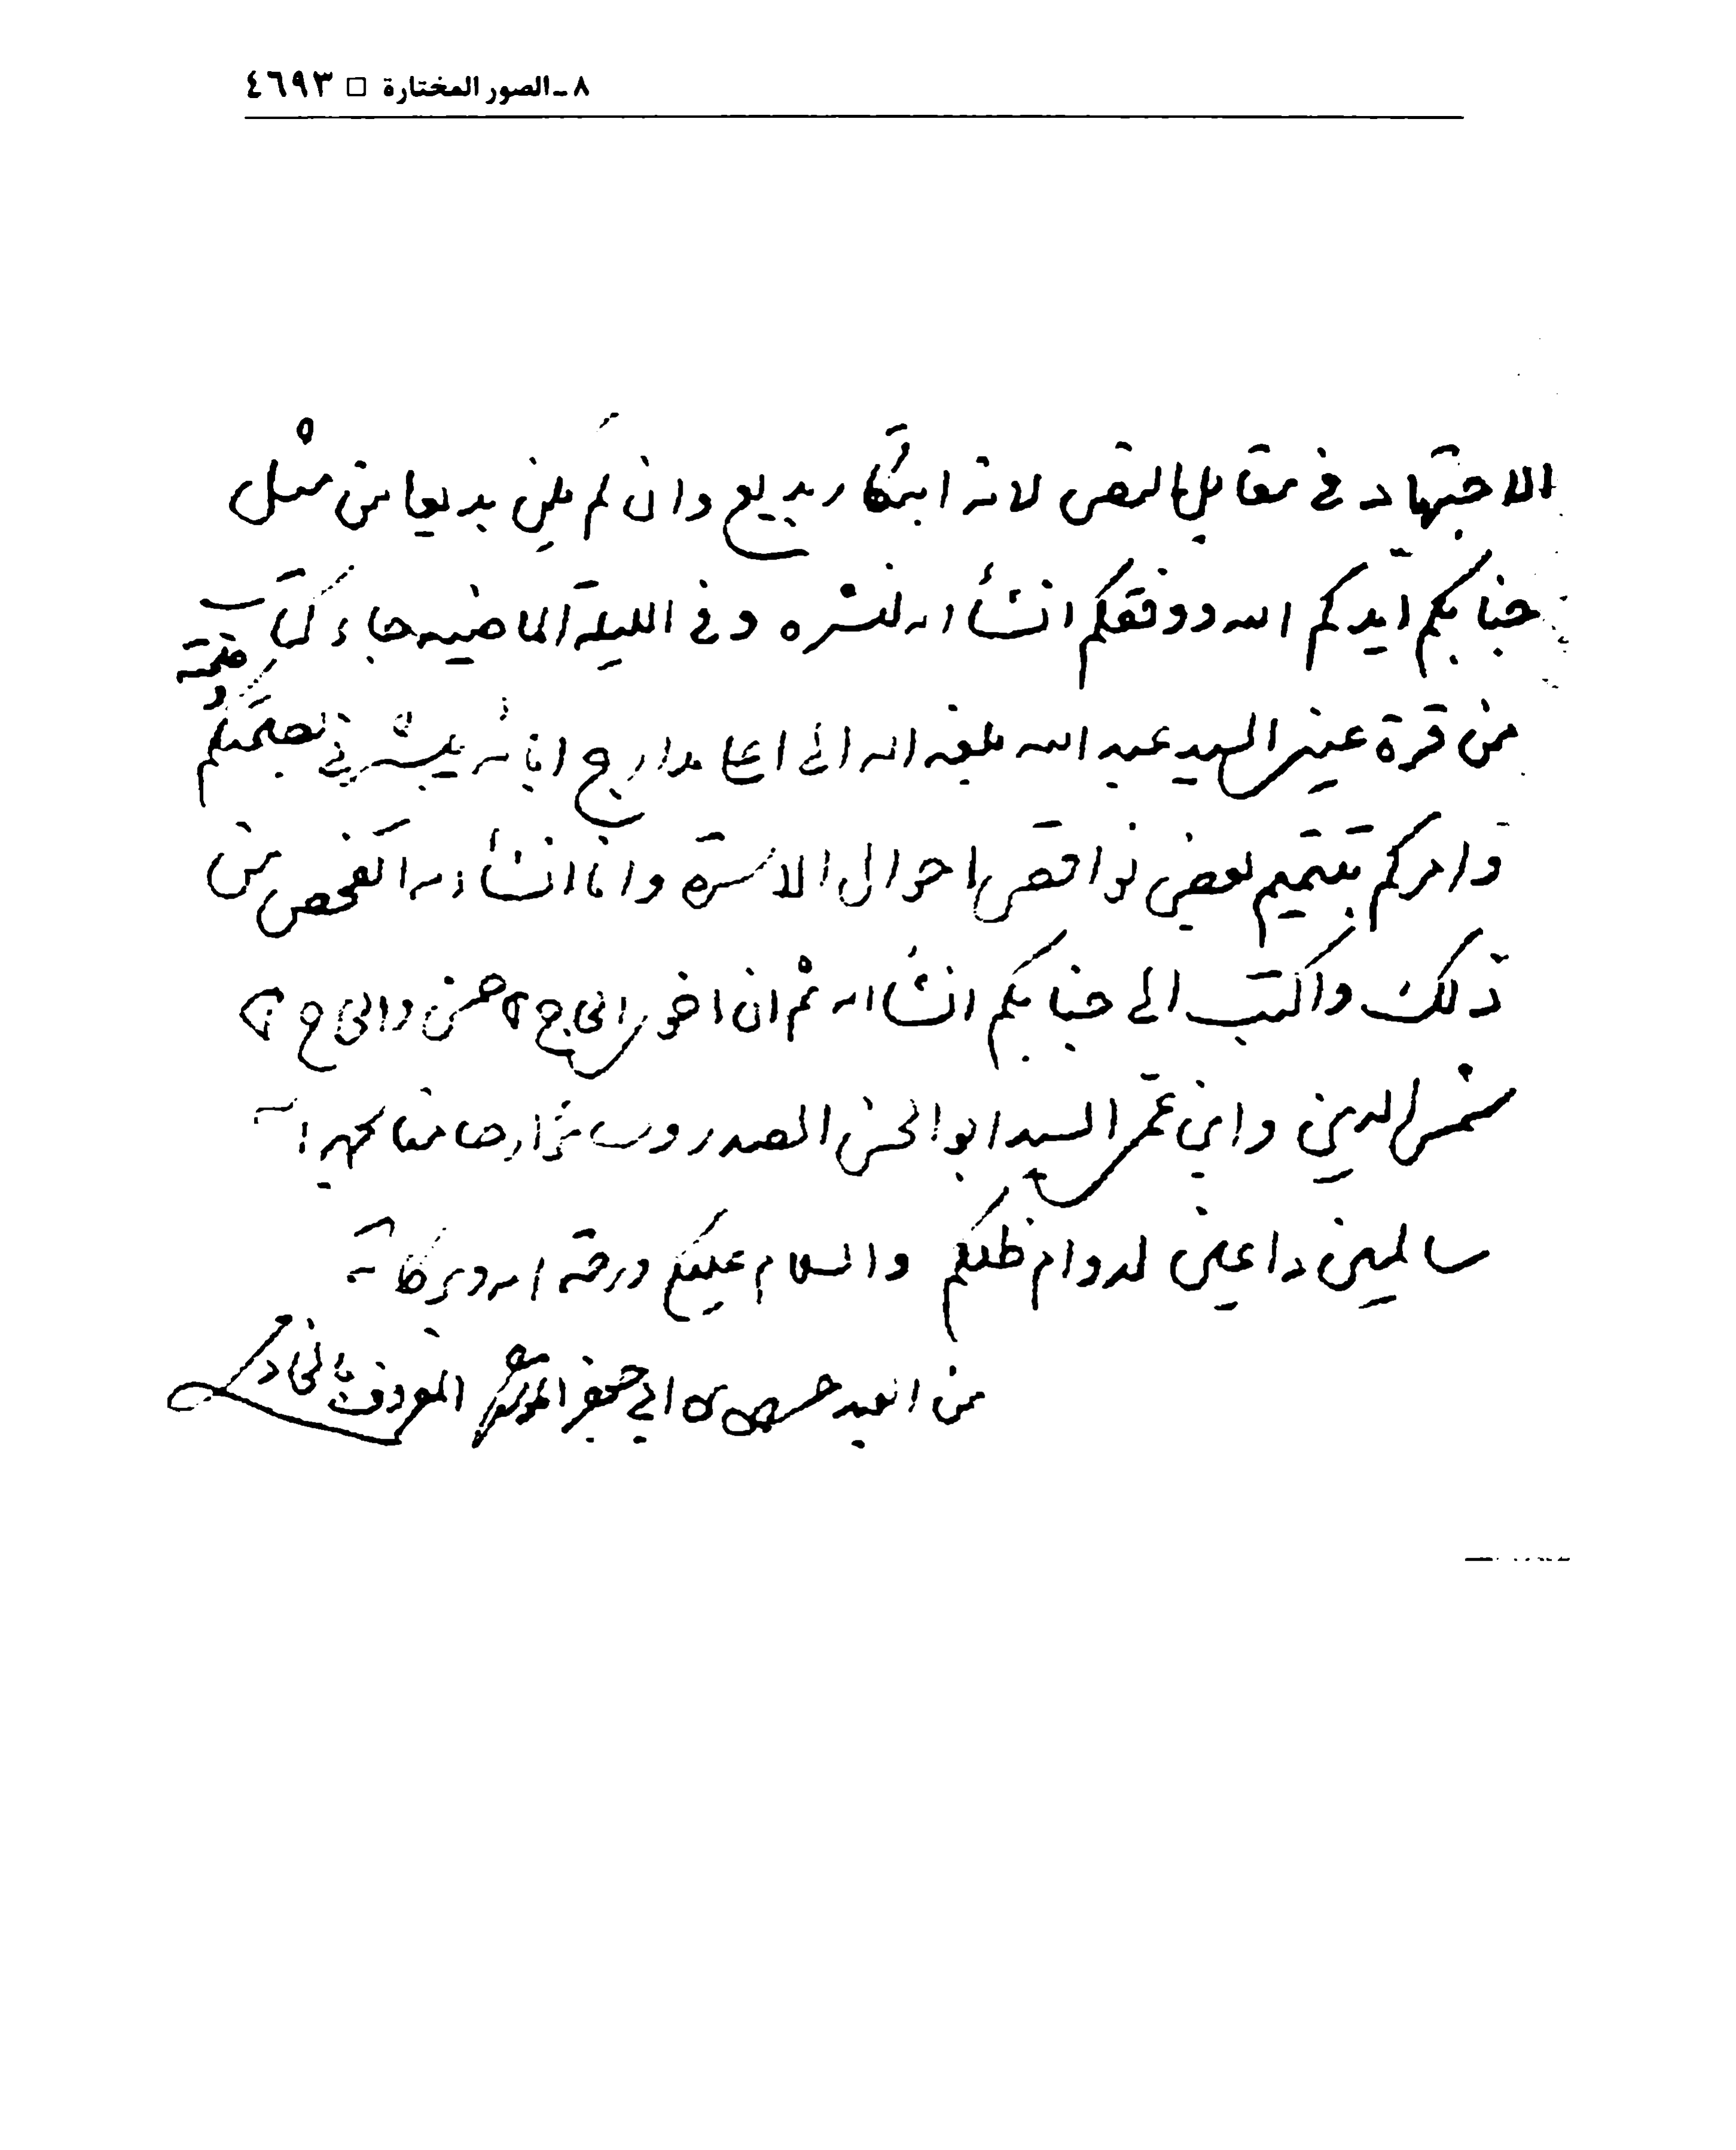 ٨ ـ الصور المختارة □ ٤٦٩٣
الاجتهاد في مقابل النص لانه ابتكار بديع وان لم يكن بديعا من مثل
جنابكم ايدكم الله ووفقكم انشأ الله لنشره وفي الليلة الماضيه جاء كتاب
من قرة عيني السيد عبد الله بلغه الله الى اعلا مدارج ابائه يبشرني بصحتكم
وامركم بتتميم بعض نواقص احوال الاسرة وانا انشأ الله اتفحص من
ذلك واكتب الى جنابكم انشأ الله ثم ان اخوي الحاج حسن والحاج
شمس الدين وابن عمي السيد ابو الحسن الصدر
سالمين داعين لدوام ظلكم والسلام عليكم ورحمة الله وبركاته
من العبد ابي جعفر